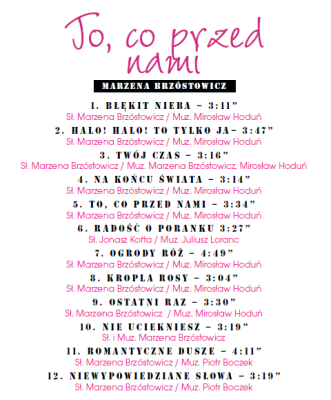 To, co przed
nami
MARZENA BRZÓSTOWICZ
1. BŁĘKIT NIEBA – 3:11”
Sł. Marzena Brzóstowicz / Muz. Mirosław Hoduń
2. HALO! HALO! TO TYLKO JA– 3:47”
Sł. Marzena Brzóstowicz / Muz. Mirosław Hoduń
3. TWÓJ CZAS – 3:16”
Sł. Marzena Brzóstowicz / Muz. Marzena Brzóstowicz, Mirosław Hoduń
4. NA KOŃCU ŚWIATA – 3:14”
Sł. Marzena Brzóstowicz / Muz. Mirosław Hoduń
5. TO, CO PRZED NAMI – 3:34”
Sł. Marzena Brzóstowicz / Muz. Mirosław Hoduń
6. RADOŚĆ O PORANKU 3:27”
Sł. Jonasz Kofta / Muz. Juliusz Loranc
7. OGRODY RÓŻ – 4:49”
Sł. Marzena Brzóstowicz / Muz. Mirosław Hoduń
8. KROPLA ROSY – 3:04”
Sł. Marzena Brzóstowicz / Muz. Mirosław Hoduń
9. OSTATNI RAZ – 3:30”
Sł. Marzena Brzóstowicz / Muz. Mirosław Hoduń
10. NIE UCIEKNIESZ – 3:19”
Sł. i Muz. Marzena Brzóstowicz
11. ROMANTYCZNE DUSZE – 4:11”
Sł. Marzena Brzóstowicz / Muz. Piotr Boczek
12. NIEWYPOWIEDZIANE SŁOWA – 3:19”
Sł. Marzena Brzóstowicz / Muz. Piotr Boczek